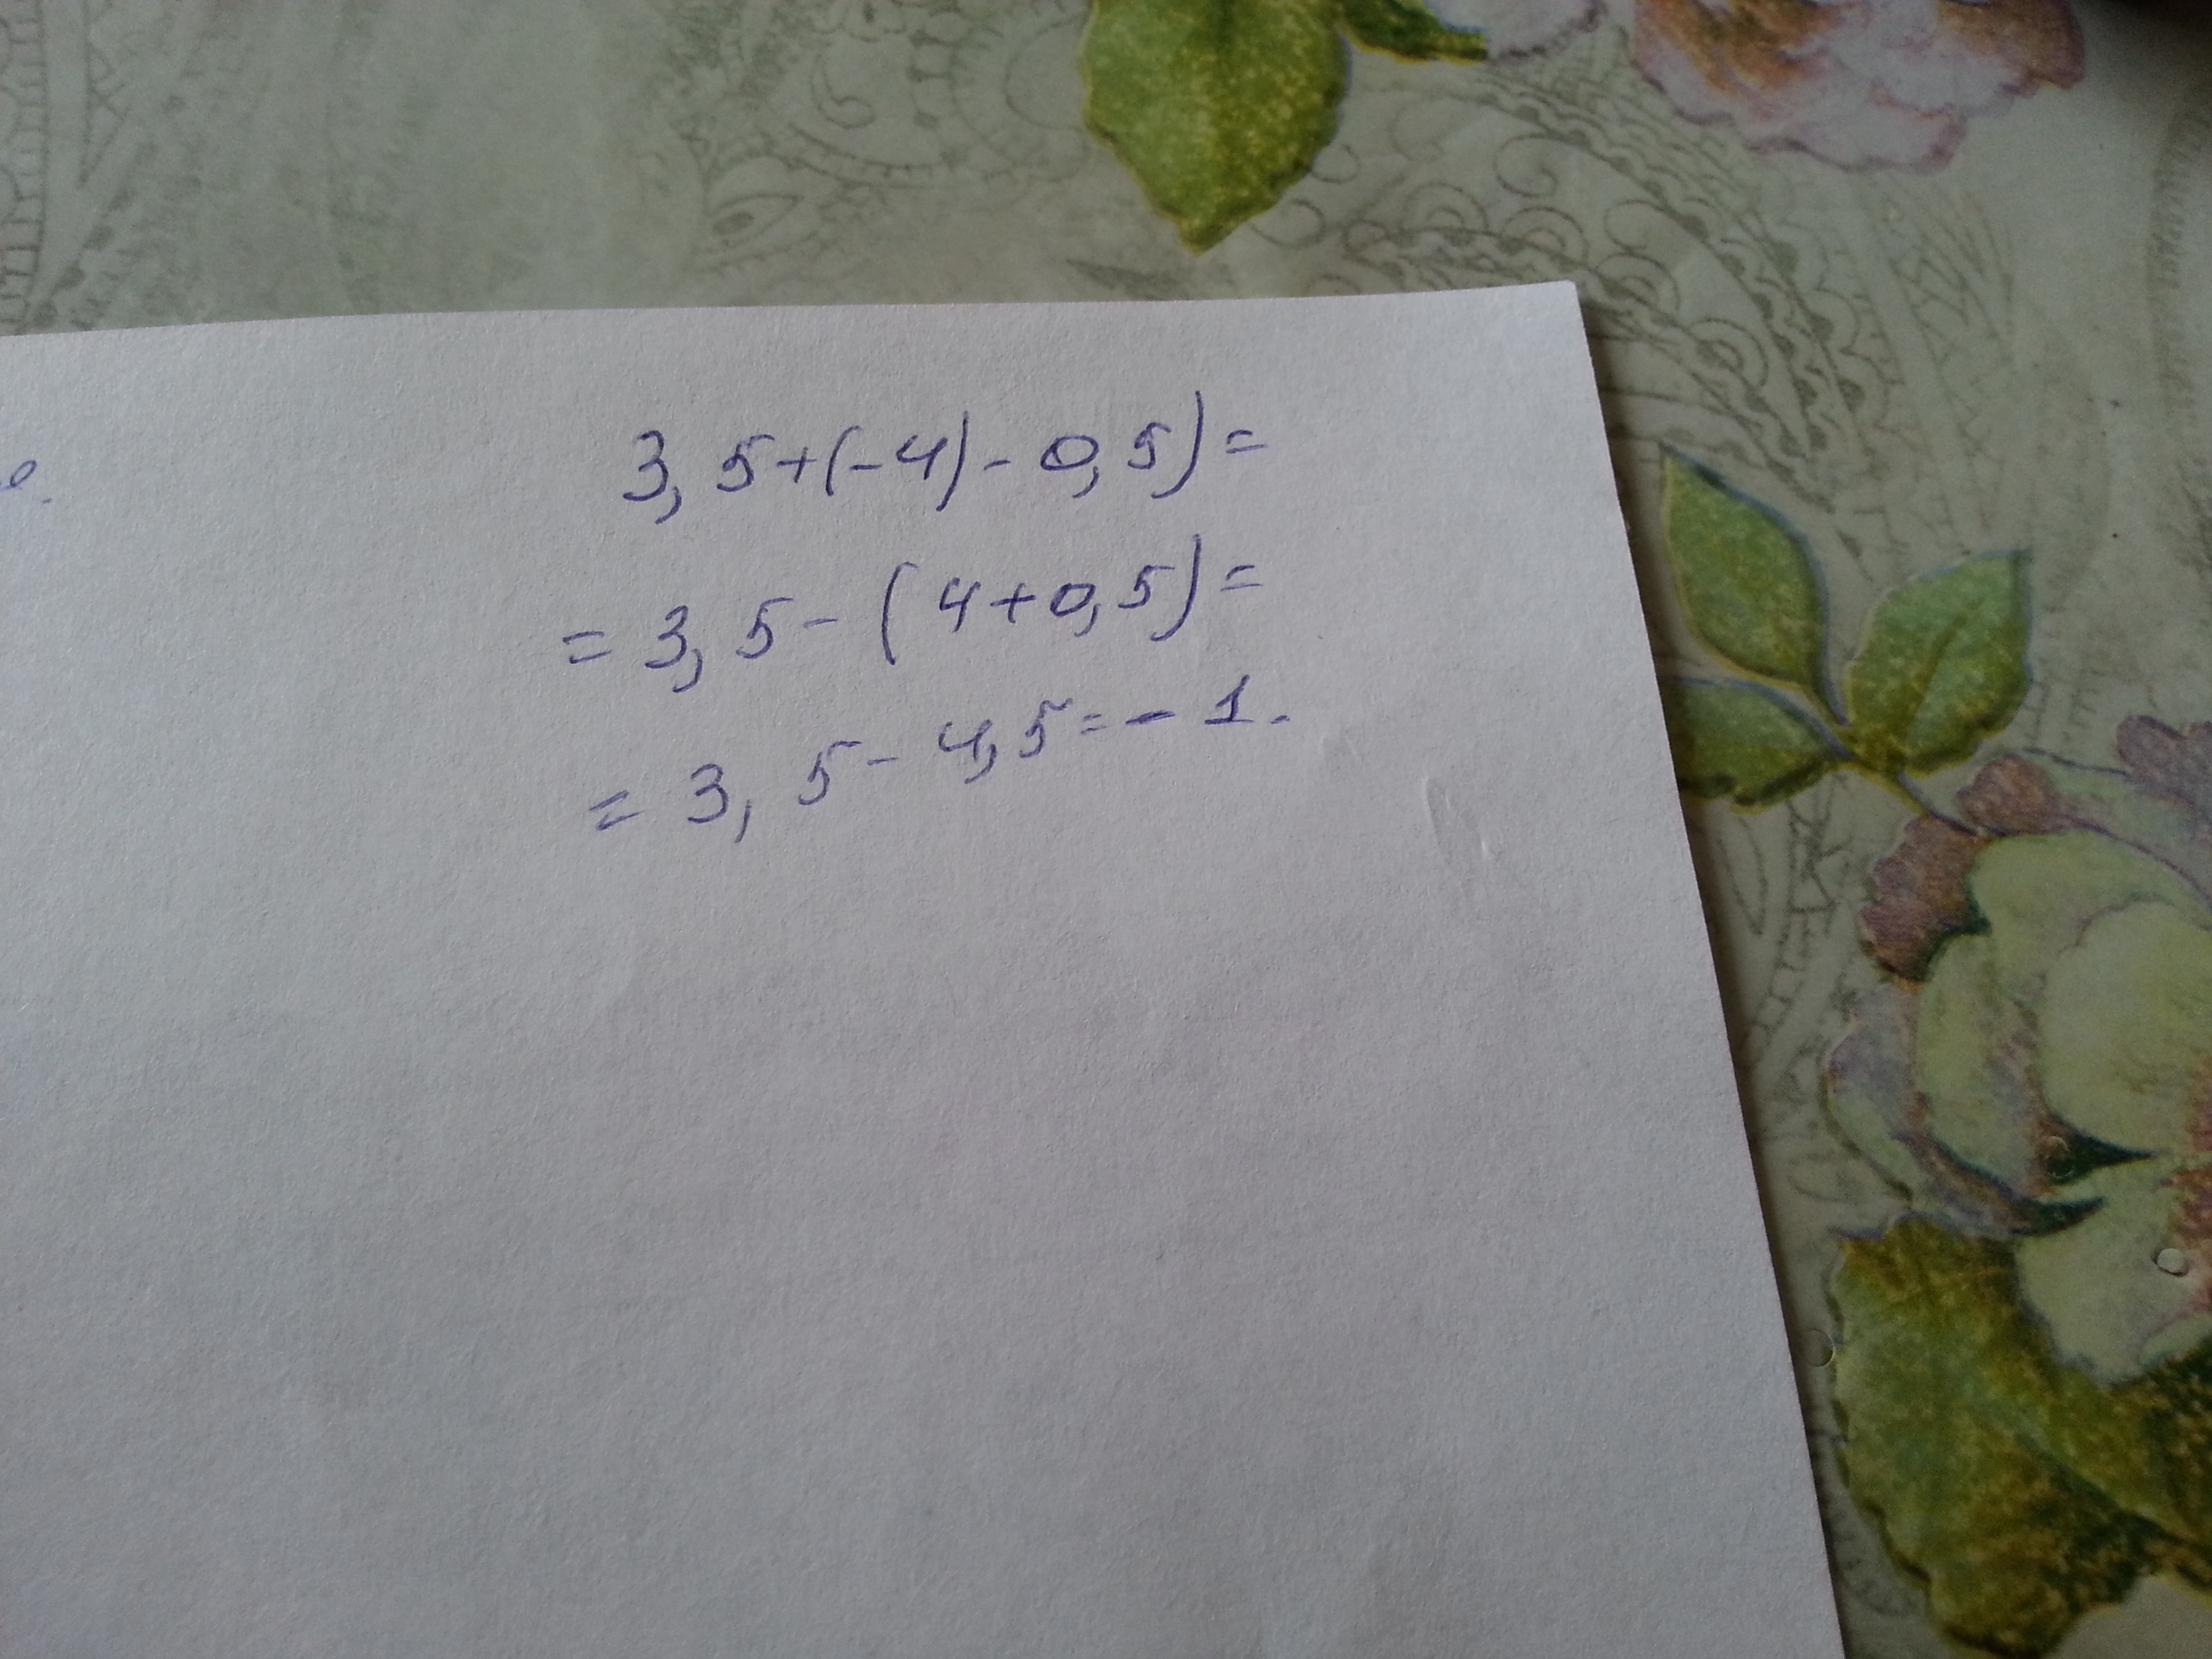 3,5+(-4)-0,5)=
=3,5-(4+0,5)=
=3,5-4,5=-1.